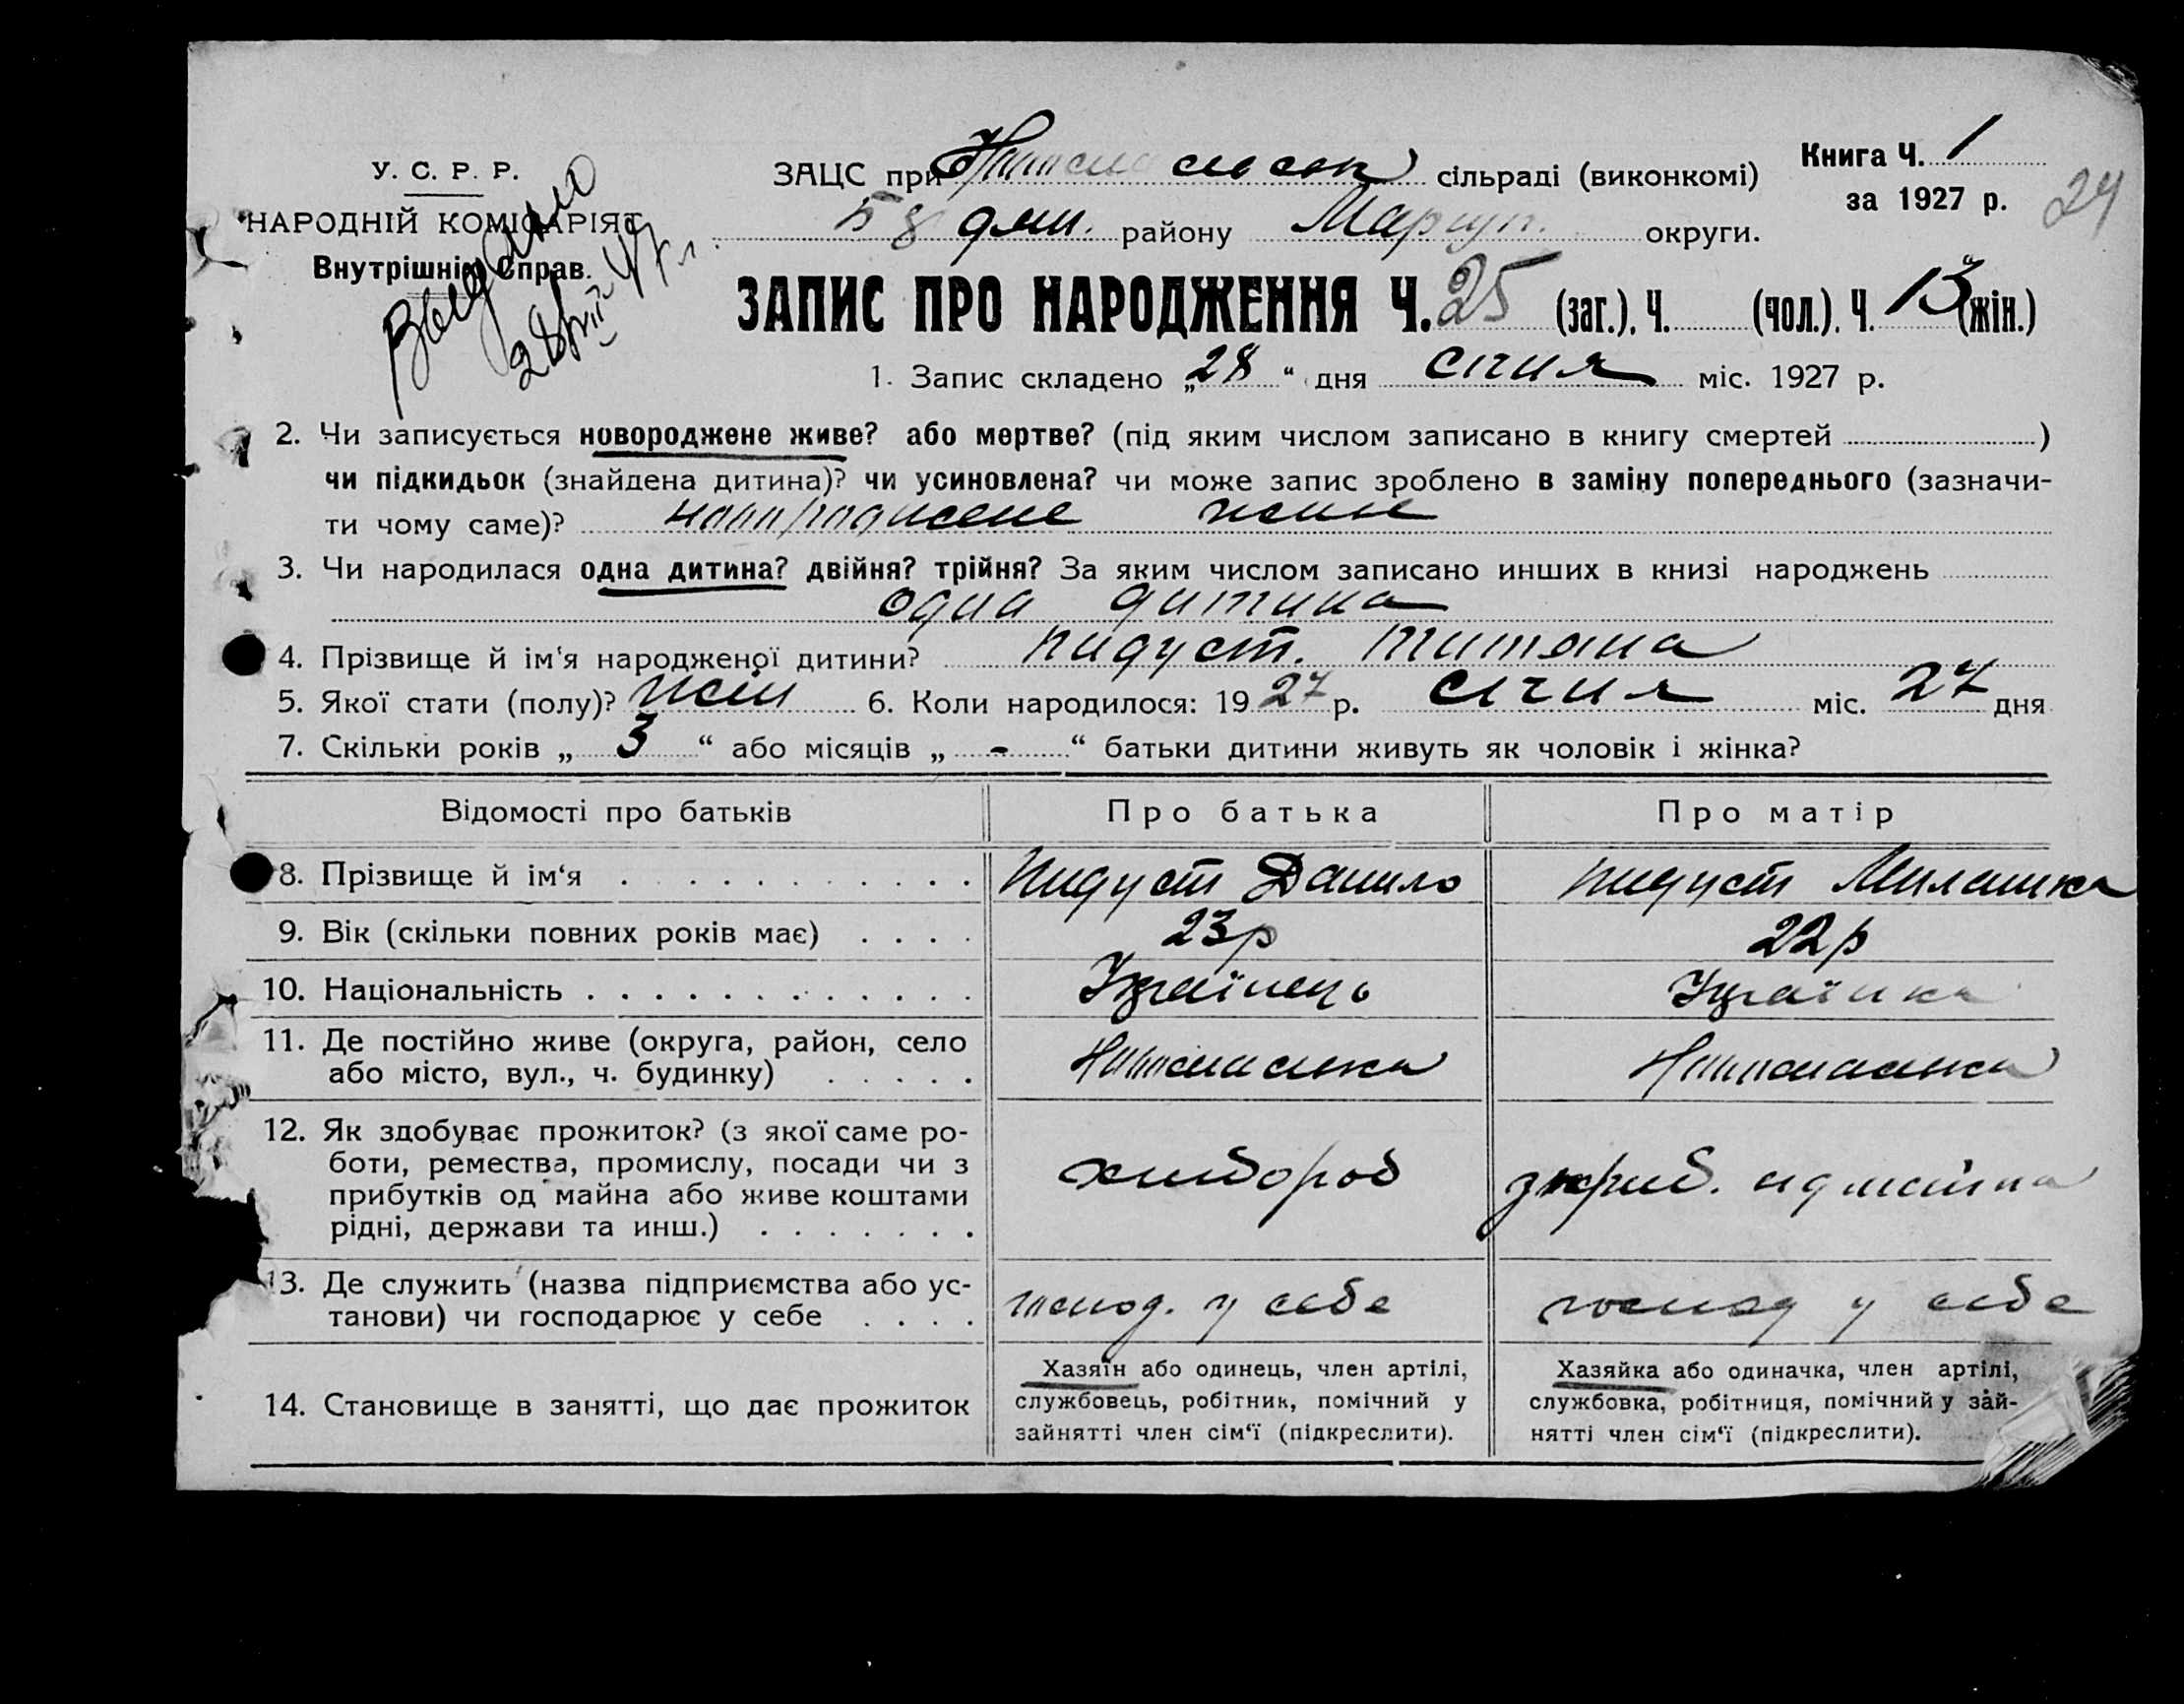 У. С. Р. Р.
НАРОДНІЙ КОМІСАРІЯТ
Внутрішніх Справ.
Выдано
28/VII 47 г.
ЗАЦС при сільраді (виконкомі)
району Маріуп. округи.
Книга Ч. 1
за 1927 р.
24
ЗАПИС ПРО НАРОДЖЕННЯ Ч. 25 (заг.), Ч. (чол.). Ч. 13 (жін.)
1. Запис складено „28“ дня січня міс. 1927 р.
2. Чи записується новороджене живе? або мертве? (під яким числом записано в книгу смертей )
чи підкидьок (знайдена дитина)? чи усиновлена? чи може запис зроблено в заміну попереднього (зазначи-
ти чому саме)? новороджене живе
3. Чи народилася одна дитина? двійня? трійня? За яким числом записано инших в книзі народжень
одна дитина
4. Прізвище й ім‘я народженої дитини? Пидуст. Титяна
5. Якої стати (полу)? жін 6. Коли народилося: 1927 р. січня міс. 27 дня
7. Скільки років „ 3 “ або місяців „ - “ батьки дитини живуть як чоловік і жінка?
Відомості про батьків Про батька Про матір
8. Прізвище й ім‘я Пидуст Данило Пидуст Миланка
9. Вік (скільки повних років має) 23р 22р
10. Національність Українець Українка
11. Де постійно живе (округа, район, село
або місто, вул., ч. будинку)
12. Як здобуває прожиток? (з якої саме ро-
боти, ремества, промислу, посади чи з
прибутків од майна або живе коштами
рідні, держави та инш.) хлібороб
13. Де служить (назва підприємства або ус-
танови) чи господарює у себе господ. у себе господ у себе
14. Становище в занятті, що дає прожиток
Хазяїн або одинець, член артілі,
службовець, робітник, помічний у
зайнятті член сім‘ї (підкреслити).
Хазяйка або одиначка, член артілі,
службовка, робітниця, помічний у зай-
нятті член сім‘ї (підкреслити).